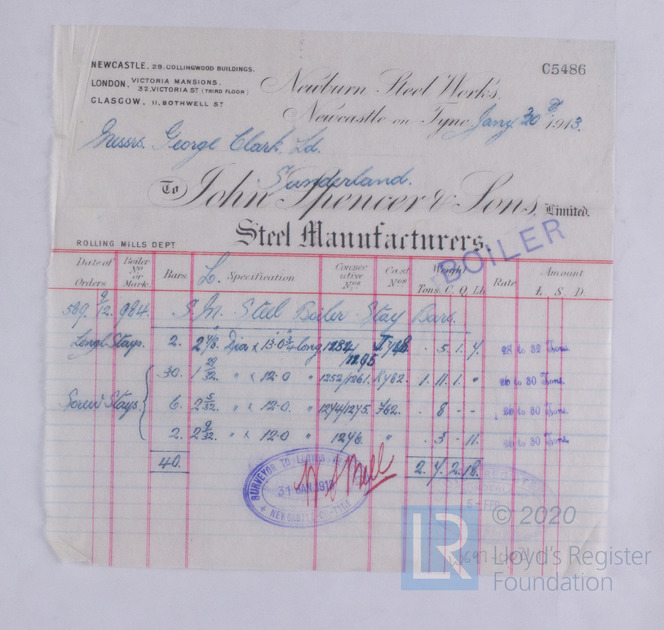 C5486
NEWCASTLE, 29, COLLINGWOOD BUILDINGS.
LONDON, VICTORIA MANSIONS,
32, VICTORIA ST (THIRD FLOOR)
GLASGOW, 11, BOTHWELL ST
Newburn Steel Works,
Newcastle on Tyne, Jany 30th 1913
Messrs. George Clark Ld.
Sunderland.
To John Spencer & Sons, Limited.
Steel Manufacturers,
ROLLING MILLS DEPT
BOILER
Date of Orders Boiler No or Mark. Bars. L. Specification Consecutive Nos Cast Nos Weight Tons. C. Q. Lb. Rate Amount £ S D.
984. S.M. Steel Boiler Stay Bars.
Stays. 2. Dia x long 1284/1295 5. 1. 28 to 32 Tons.
30. 1 29/32 " x 12.0 1252/1261. 1. 11. 1. " 26 to 30 Tons.
Screw Stays. 6. 2 5/32 " x 12.0. 1274/1275. 762. 8 - - 26 to 30 Tons.
2. 2 9/32 " x 12.0 1276. " 3 - 11. 26 to 30 Tons.
40. 2. 7. 2. 18.
SURVEYOR TO LLOYD'S
31 JAN 1913
NEWCASTLE-ON-TYNE
6 FEB
LR
© 2020
Lloyd's Register
Foundation